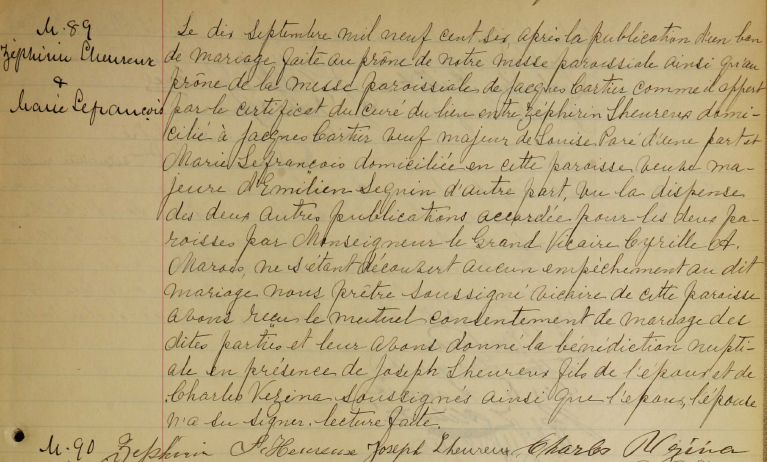 M. 89
Zéphirin Lheureux
&
Marie Lefrançois
Le dix Septembre mil neuf cent six, après la publication d'un ban
de mariage faite au prône de notre messe paroissiale ainsi qu'au
prône de la messe paroissiale de Jacques Cartier comme il appert
par le certificat du curé du lieu entre Zéphirin Lheureux domi-
cilié à Jacques Cartier veuf majeur de Louise Paré d'une part et
Marie Lefrançois domiciliée en cette paroisse veuve ma-
jeure d'Emilien Seguin d'autre part, vu la dispense
des deux autres publications accordée pour les deux pa-
roisses par Monseigneur le Grand Vicaire Cyrille A.
Marois, ne s'étant découvert aucun empêchement au dit
mariage nous prêtre soussigné vicaire de cette paroisse
avons reçu le mutuel consentement de mariage des
dites parties et leur avons donné la bénédiction nupti-
ale en présence de Joseph Lheureux fils de l'epoux et de
Charles Vezina soussignés ainsi que l'epoux, l'épouse
n'a su signer. lecture faite.
M. 90 Zephirin L'Heureux Joseph Lheureux Charles Vézina